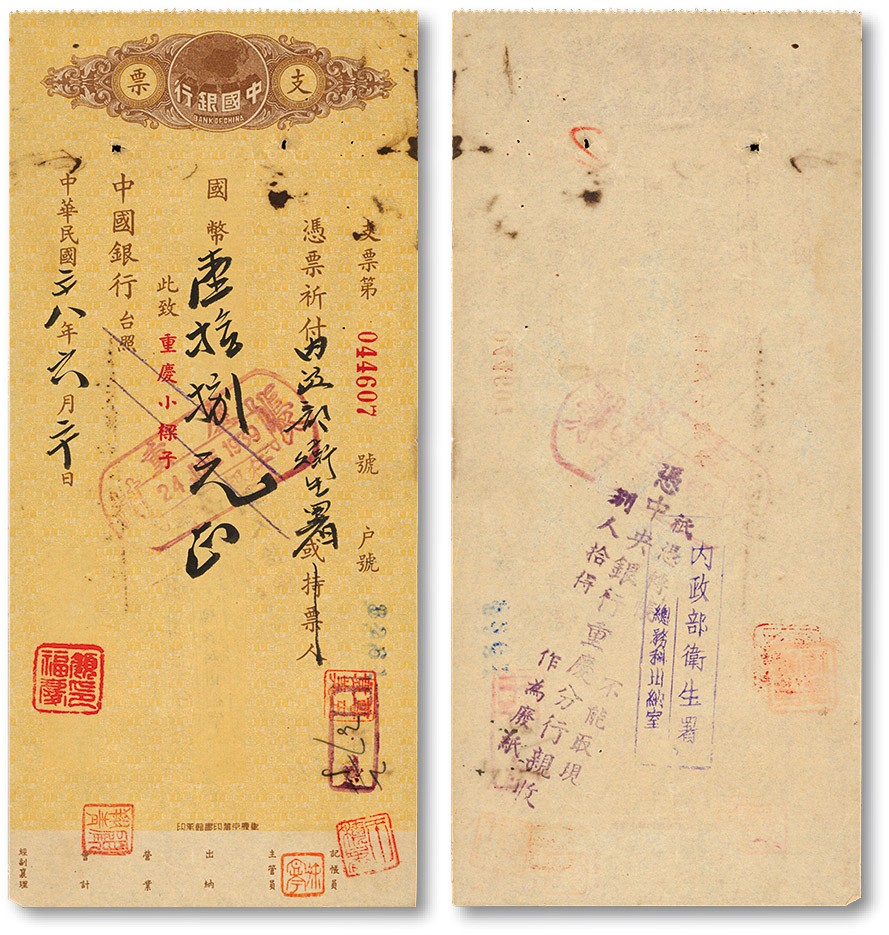 支票
中國銀行
BANK OF CHINA
支票第 044607 號 戶號
憑票祈付內政部衛生署或持票人
國幣壹拾捌元正
此致 重慶小樑子
中國銀行台照
中華民國廿八年六月廿日
顏福慶印
24 1939
重慶京華印書館承印
記帳員
主管員
出納
營業
會計
經副襄理
內政部衛生署
總務科出納室
祗憑
憑中央銀行重慶分行親收
別人拾得
不能取現
作為廢紙